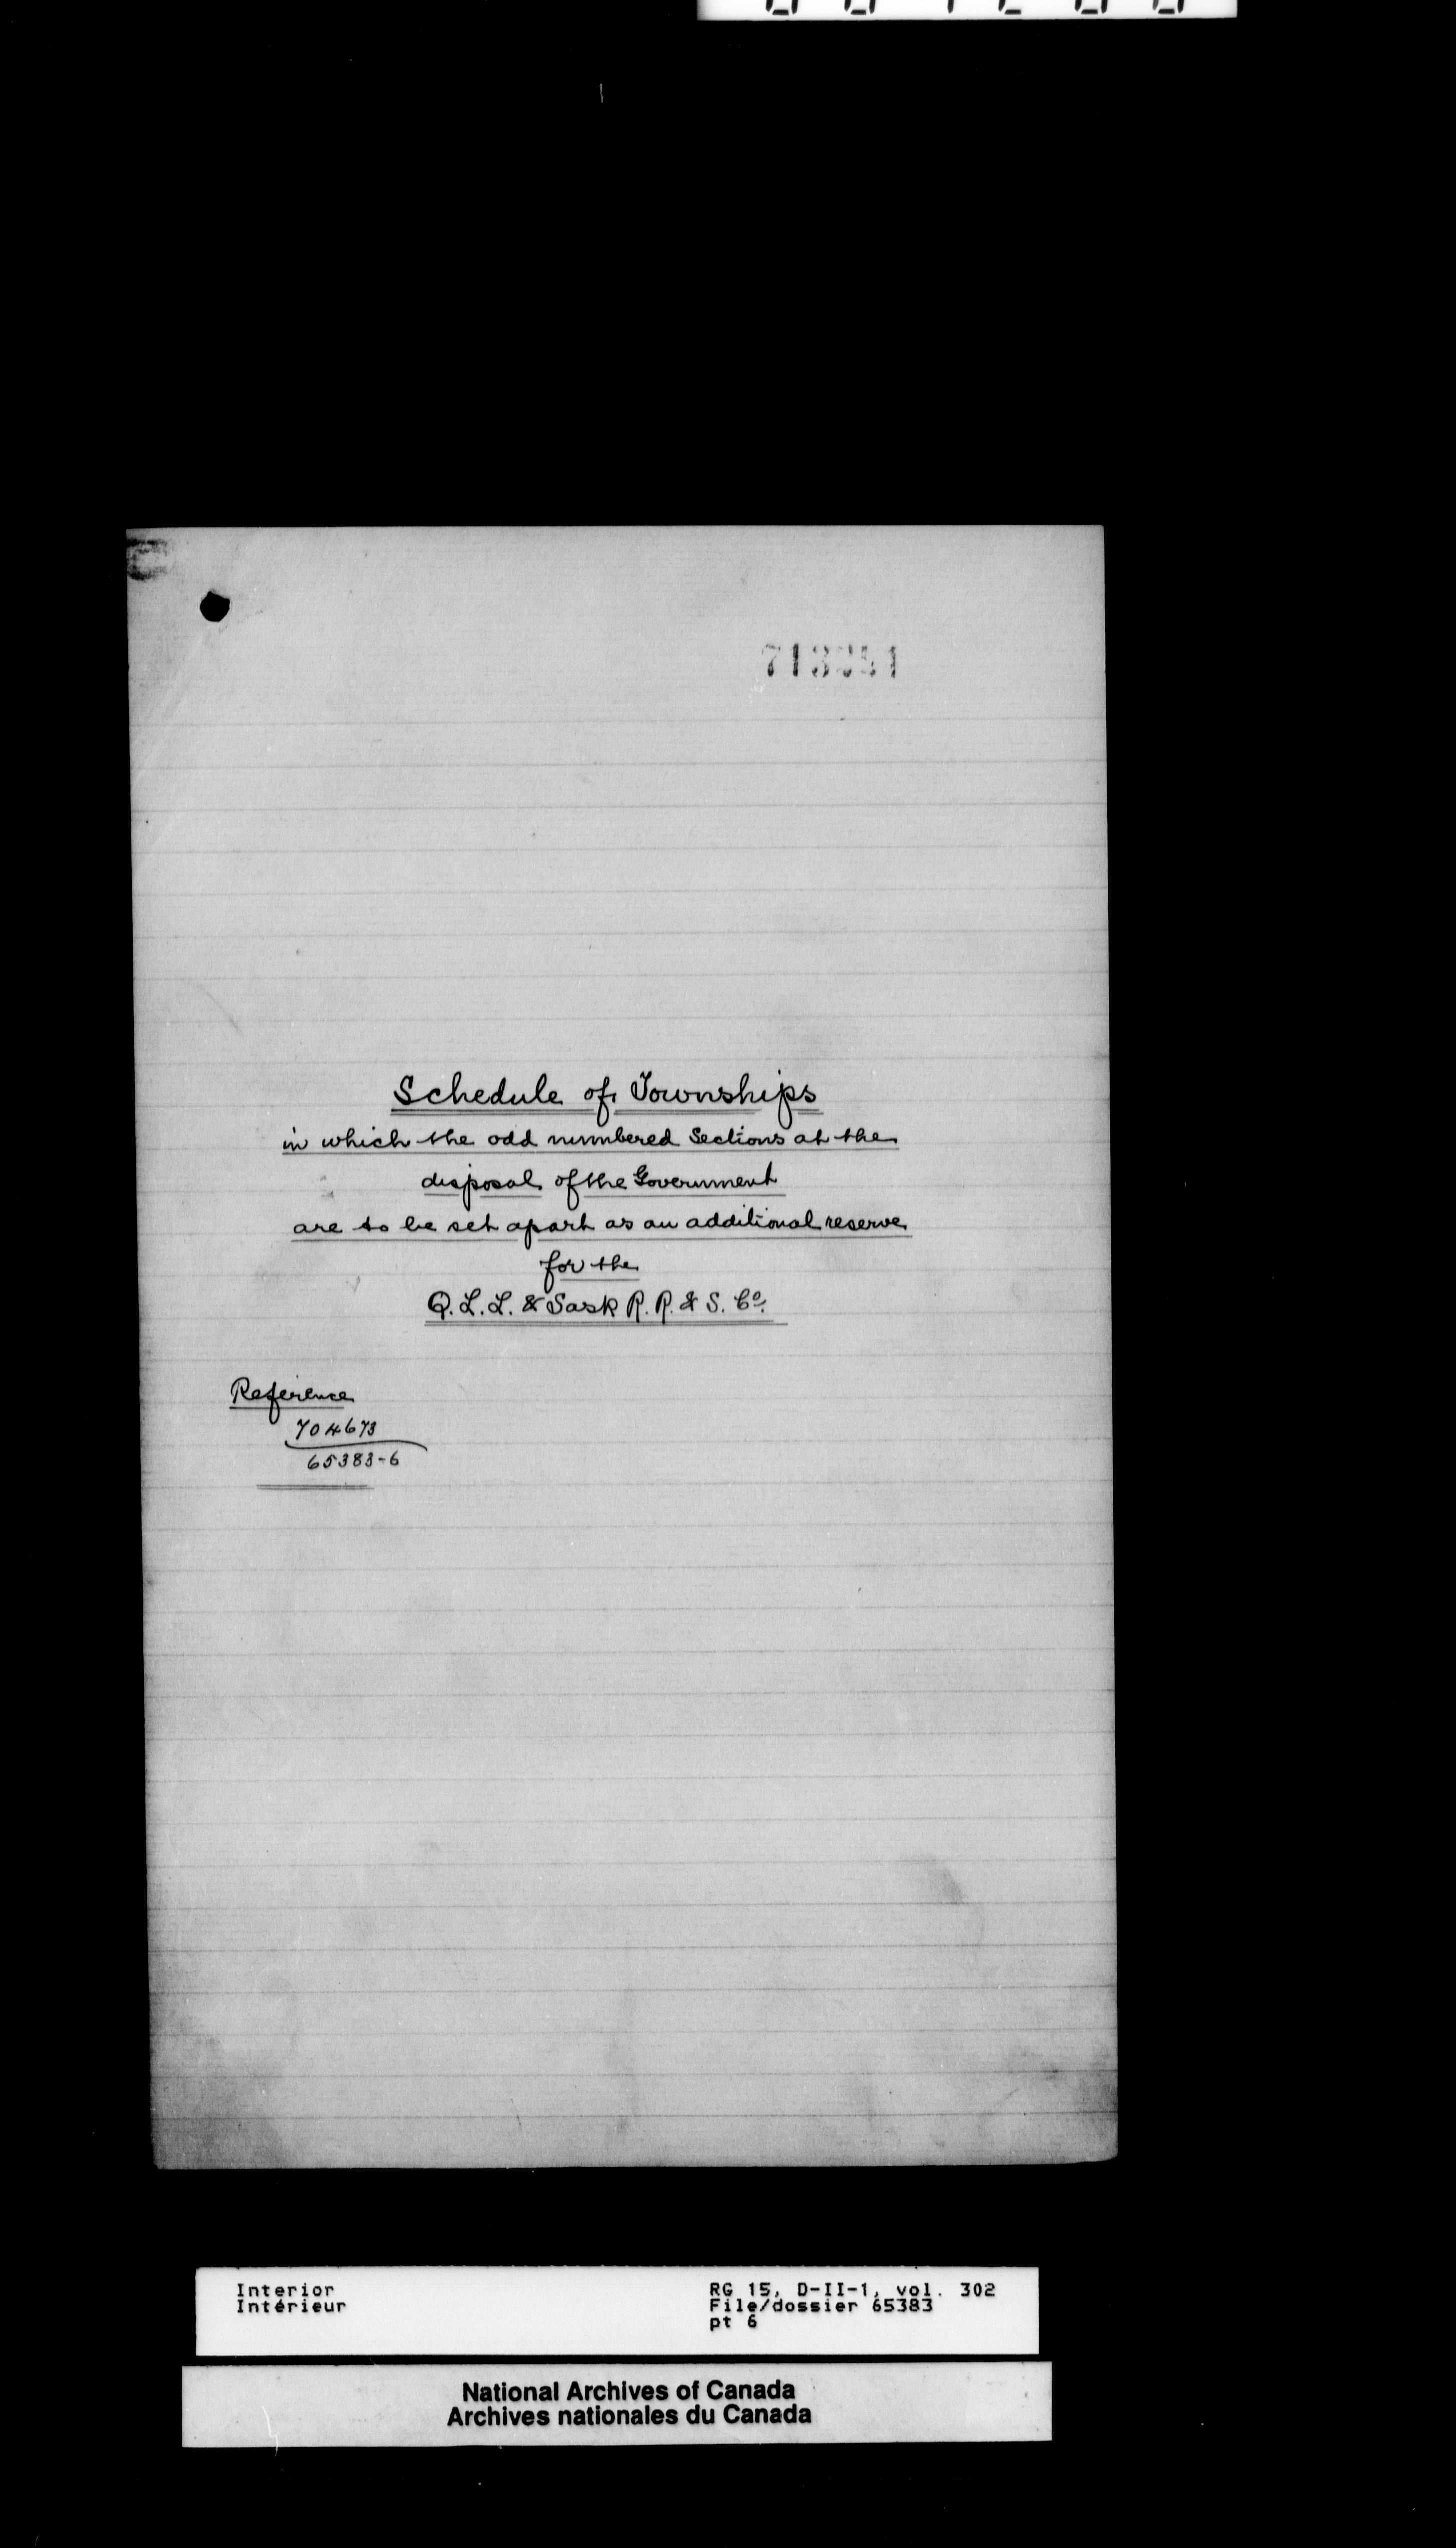 Schedule of Townships
in which the odd numbered Sections at the
disposal of the Government
are to be set apart as an additional reserve
for the
Q. L. L. & Sask R. R. & S. Co.
Reference
704673
65383-6
Interior
Intérieur
RG 15, D-II-1, vol. 302
File/dossier 65383
pt 6
National Archives of Canada
Archives nationales du Canada